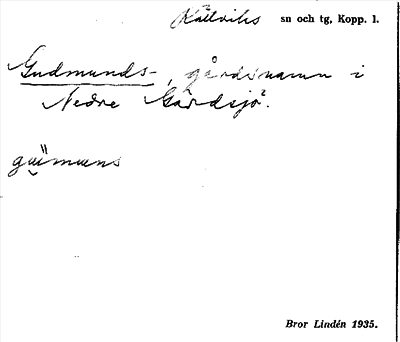 Källviks sn och tg, Kopp. l.
Gudmunds-, gårdsnamn i
Nedre Gårdsjö.
Bror Lindén 1935.